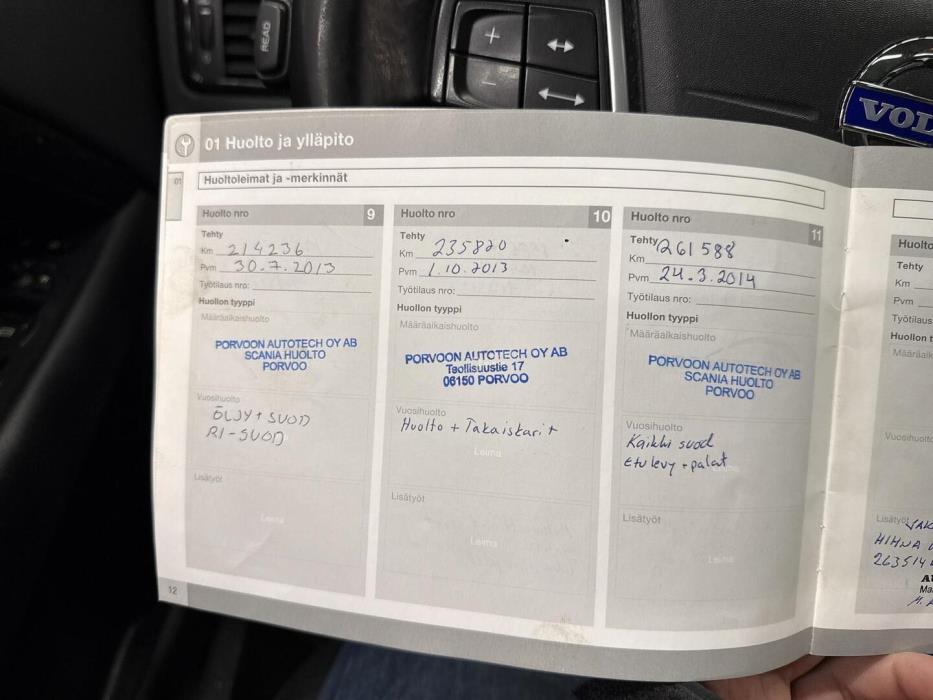 READ
+
-
VOL
01 Huolto ja ylläpito
01
Huoltoleimat ja -merkinnät
Huolto nro 9
Tehty
Km 214236
Pvm 30.7.2013
Työtilaus nro:
Huollon tyyppi
Määräaikaishuolto
PORVOON AUTOTECH OY AB
SCANIA HUOLTO
PORVOO
Vuosihuolto
ÖLJY + SUOD
RI-SUOD
Lisätyöt
Leima
12
Huolto nro 10
Tehty
Km 235820
Pvm 1.10.2013
Työtilaus nro:
Huollon tyyppi
Määräaikaishuolto
PORVOON AUTOTECH OY AB
Teollisuustie 17
06150 PORVOO
Vuosihuolto
Huolto + Takaiskarit
Leima
Lisätyöt
Leima
Huolto nro 11
Tehty
Km 261588
Pvm 24.3.2014
Työtilaus nro:
Huollon tyyppi
Määräaikaishuolto
PORVOON AUTOTECH OY AB
SCANIA HUOLTO
PORVOO
Vuosihuolto
Kaikki suod
Etulevy + palat
Lisätyöt
Leima
Huolto
Tehty
Km
Pvm
Työtilaus
Huollon t
Määräaik
Vuosihuolto
Lisätyöt JAK
HIHNA
263514